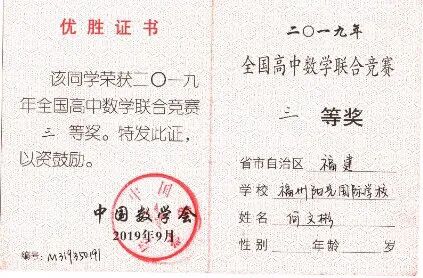 优胜证书
该同学荣获二〇一九
年全国高中数学联合竞赛
三 等奖。特发此证,
以资鼓励。
中国数学会
2019年9月
编号: M319350191
二〇一九年
全国高中数学联合竞赛
三 等奖
省市自治区 福建
学校 福州阳光国际学校
姓名 何文彬
性别 年龄 岁